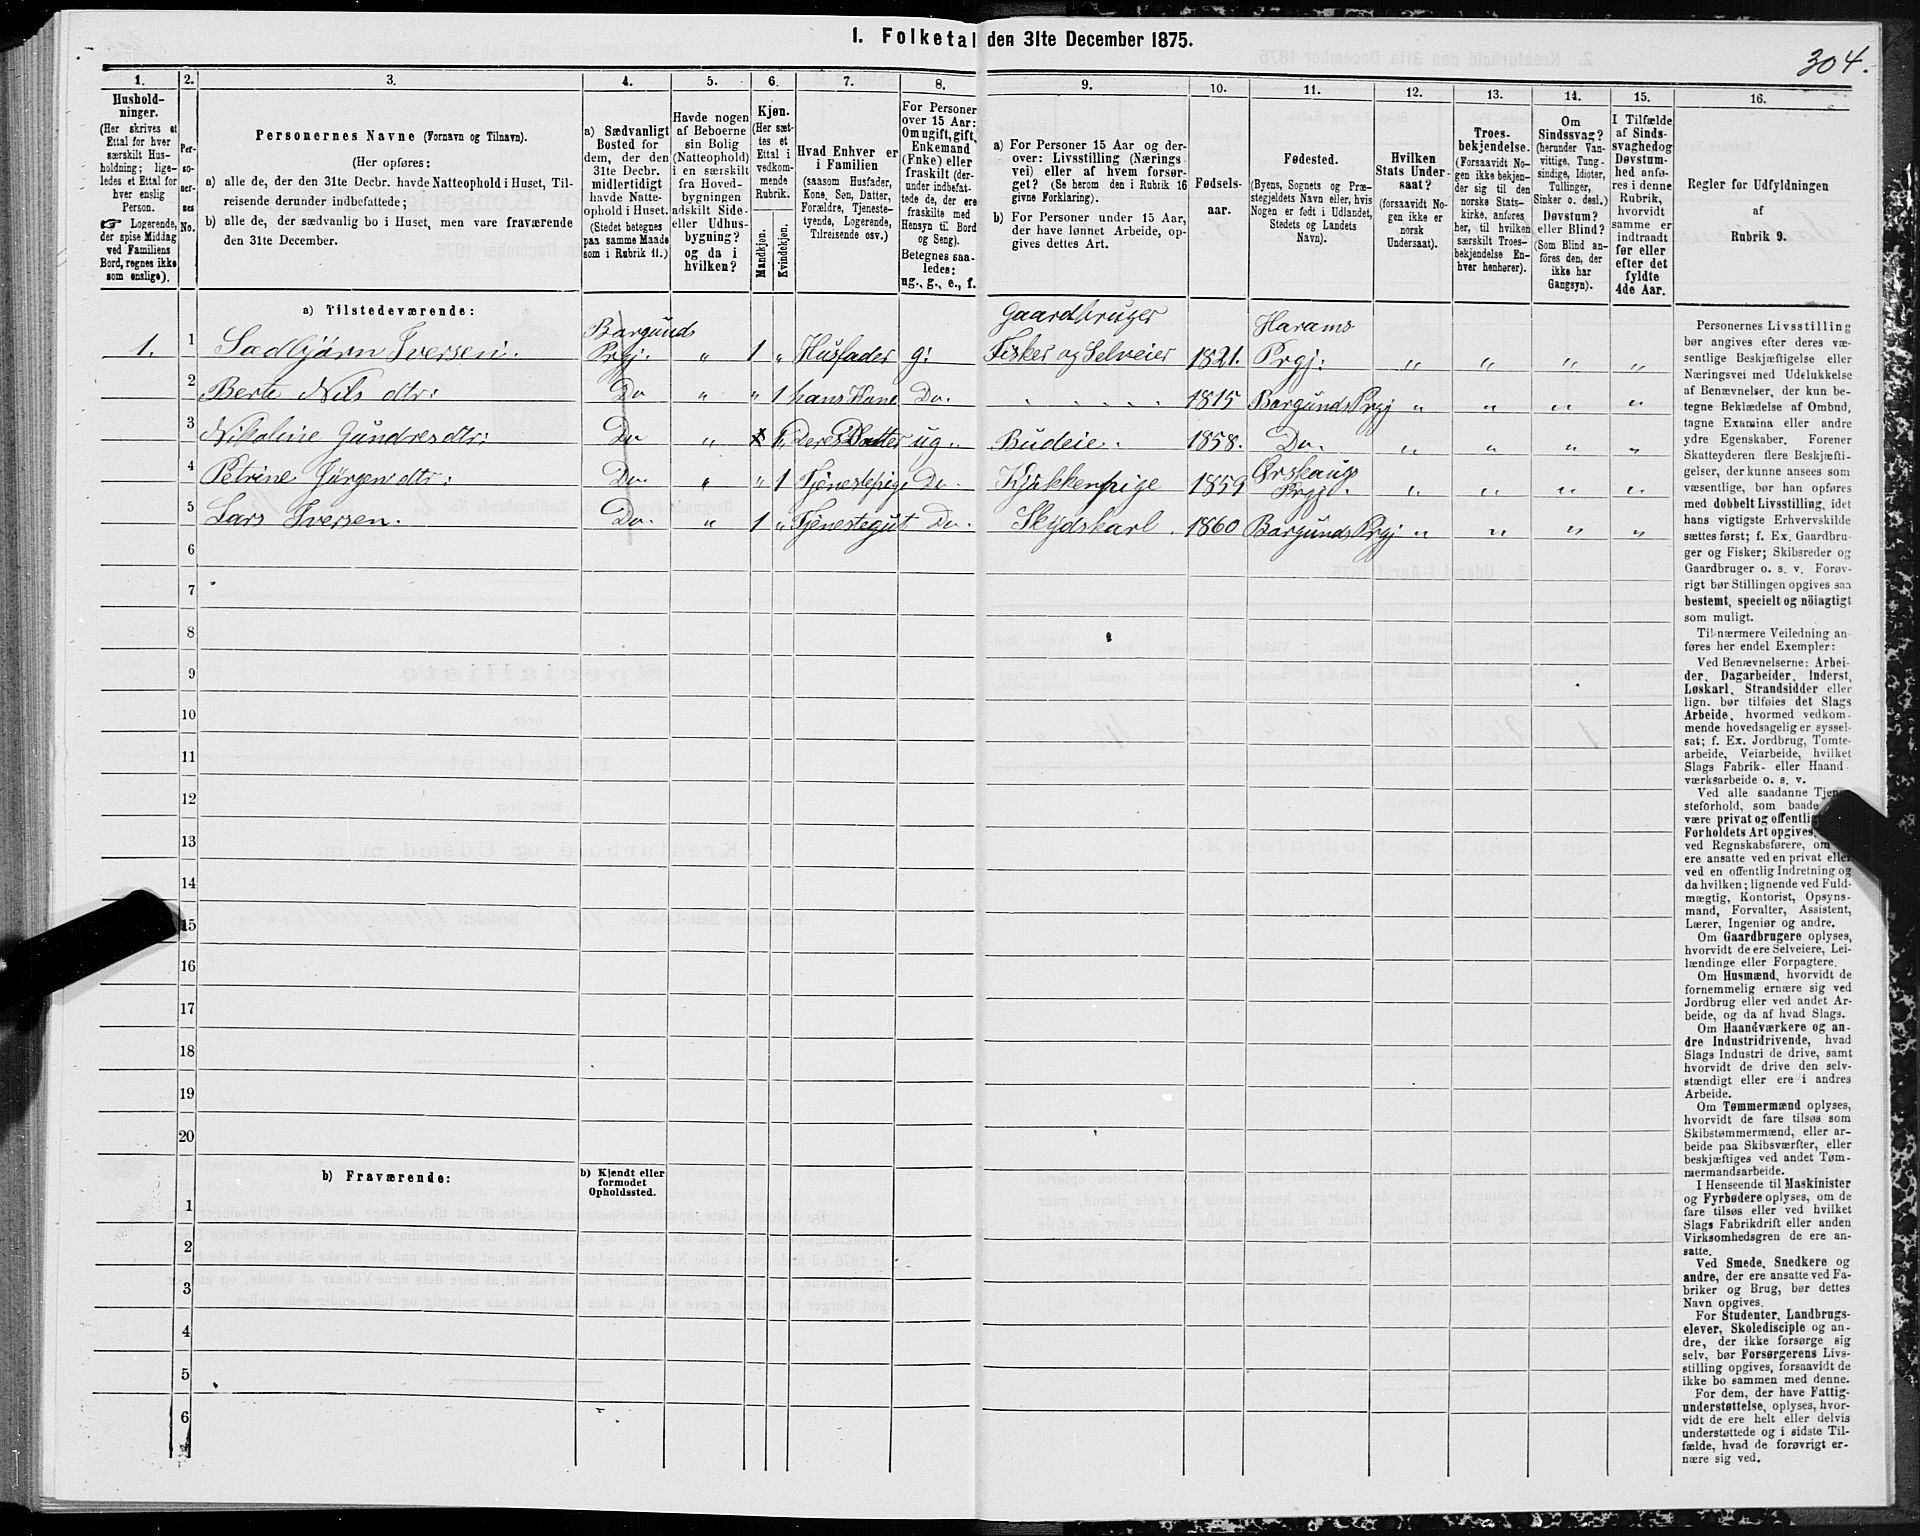 I. Folketal den 31te December 1875.
304.
1.
2.
3.
4.
5.
6.
7.
8.
9.
10.
11.
12.
13.
14.
15.
16.
Hushold-
ninger.
(Her skrives et
Ettal for hver
særskilt Hus-
holdning; lige-
ledes et Ettal for
hver enslig
Person.
☞ Logerende,
der spise Middag
ved Familiens
Bord, regnes ikke
som enslige).
Per-
so-
ner-
nes
No.
Personernes Navne (Fornavn og Tilnavn).
(Her opføres:
a) alle de, der den 31te Decbr. havde Natteophold i Huset, Til-
reisende derunder indbefattede;
b) alle de, der sædvanlig bo i Huset, men vare fraværende
den 31te December.
a) Sædvanligt
Bosted for
dem, der den
31te Decbr.
midlertidigt
havde Natte-
ophold i Huset.
(Stedet betegnes
paa samme Maade
som i Rubrik 11.)
Havde nogen
af Beboerne
sin Bolig
(Natteophold)
i en særskilt
fra Hoved-
bygningen
adskilt Side-
eller Udhus-
bygning?
og da i
hvilken?
Kjøn.
(Her sæt-
tes et
Ettal i
vedkom-
mende
Rubrik.
Mandkjøn.
Kvindekjøn.
Hvad Enhver er
i Familien
(saasom Husfader,
Kone, Søn, Datter,
Forældre, Tjeneste-
tyende, Logerende,
Tilreisende osv.)
For Personer
over 15 Aar:
Om ugift, gift,
Enkemand
(Enke) eller
fraskilt (der-
under indbefat-
tede de, der ere
fraskilte med
Hensyn til Bord
og Seng).
Betegnes saa-
ledes:
ug., g., e., f.
a) For Personer 15 Aar og der-
over: Livsstilling (Nærings
vei) eller af hvem forsør-
get? (Se herom den i Rubrik 16
givne Forklaring).
b) For Personer under 15 Aar,
der have lønnet Arbeide, op-
gives dettes Art.
Fødsels-
aar.
Fødested.
(Byens, Sognets og Præ-
stegjeldets Navn eller, hvis
Nogen er født i Udlandet,
Stedets og Landets
Navn).
Hvilken
Stats Under-
saat?
(forsaavidt No-
gen ikke er
norsk
Undersaat).
Troes-
bekjendelse.
(Forsaavidt No-
gen ikke bekjen-
der sig til den
norske Stats-
kirke, anføres
her, til hvilken
særskilt Troes-
bekjendelse En-
hver henhører).
Om
Sindssvag?
(herunder Van-
vittige, Tung-
sindige, Idioter,
Tullinger,
Sinker o. desl.)
Døvstum?
eller Blind?
(Som Blind an-
føres den, der
ikke har
Gangsyn).
I Tilfælde
af Sinds-
svaghed og
Døvstum-
hed anfø-
res i denne
Rubrik,
hvorvidt
samme er
indtraadt
før eller
efter det
fyldte
4de Aar.
Regler for Udfyldningen
af
Rubrik 9.
a) Tilstedeværende:
1. 1 Sadbjørn Iversen. Borgunds Prgj. „ 1 „ Husfader g. Gaardbruger Fisker og Selveier 1821. Harams Prgj: „ „ „ „
2 Berte Nils dtr: Do „ „ 1 hans Kone Do. 1815 Borgunds Prgj „ „ „ „
3 Nikoline Gundresdtr: Do „ 1 Deres Datter ug. Budeie. 1858. Do. „ „ „ „
4 Petrine Jørgendtr: Do. „ „ 1 Tjenestepige Do. Kjøkkenpige 1859 Ørskoug Prgj. „ „ „ „
5 Lars Iversen. Do. „ 1 „ Tjenestegut Do. Skydskarl. 1860 Borgunds Prgj „ „ „ „
6
7
8
9
10
11
12
13
14
15
16
17
18
19
20
b) Fraværende:
b) Kjendt eller
formodet
Opholdssted.
1
2
3
4
5
6
Personernes Livsstilling
bør angives efter deres væ-
sentlige Beskjæftigelse eller
Næringsvei med Udelukkelse
af Benævnelser, der kun be-
tegne Beklædelse af Ombud,
tagne Examina eller andre
ydre Egenskaber. Forener
Skatteyderen flere Beskjæfti-
gelser, der kunne ansees som
væsentlige, bør han opføres
med dobbelt Livsstilling, idet
hans vigtigste Erhvervskilde
sættes først; f. Ex. Gaardbru-
ger og Fisker; Skibsreder og
Gaardbruger o. s. v. Forøv-
rigt bør Stillingen opgives saa
bestemt, specielt og nöiagtigt
som muligt.
Til nærmere Veiledning an-
føres her endel Exempler:
Ved Benævnelserne: Arbei-
der, Dagarbeider, Inderst,
Løskarl, Strandsidder eller
lign. bør tilføies det Slags
Arbeide, hvormed vedkom-
mende hovedsagelig er syssel-
sat; f. Ex. Jordbrug, Tomte-
arbeide, Veiarbeide, hvilket
Slags Fabrik- eller Haand-
værksarbeide o. s. v.
Ved alle saadanne Tjene-
steforhold, som baade
være privat og offentlig
Forholdets Art opgives,
ved Regnskabsførere, om
ere ansatte ved en privat eller
ved en offentlig Indretning og
da hvilken; lignende ved Fuld-
mægtig, Kontorist, Opsyns-
mand, Forvalter, Assistent,
Lærer, Ingeniør og andre.
Om Gaardbrugere oplyses,
hvorvidt de ere Selveiere, Lei-
lændinge eller Forpagtere.
Om Husmænd, hvorvidt de
fornemmelig ernære sig ved
Jordbrug eller ved andet Ar-
beide, og da af hvad Slags.
Om Haandværkere og an-
dre Industridrivende, hvad
Slags Industri de drive, samt
hvorvidt de drive den selv-
stændigt eller ere i andres
Arbeide.
Om Tømmermænd oplyses,
hvorvidt de fare tilsøs som
Skibstømmermænd, eller ar-
beide paa Skibsværfter, eller
beskjæftiges ved andet Tøm-
mermandsarbeide.
I Henseende til Maskinister
og Fyrbødere oplyses, om de
fare tilsøs eller ved hvilket
Slags Fabrikdrift eller anden
Virksomhedsgren de ere an-
satte.
Ved Smede, Snedkere og
andre, der ere ansatte ved Fa-
briker og Brug, bør dettes
Navn opgives.
For Studenter, Landbrugs-
elever, Skoledisciple og an-
dre, der ikke forsørge sig
selv, bør Forsørgerens Livs-
stilling opgives, forsaavidt de
ikke bo sammen med denne.
For dem, der have Fattig-
understøttelse, oplyses, hvor-
vidt de ere helt eller delvis
understøttede og i sidste Til-
fælde, hvad de forøvrigt er-
nære sig ved.